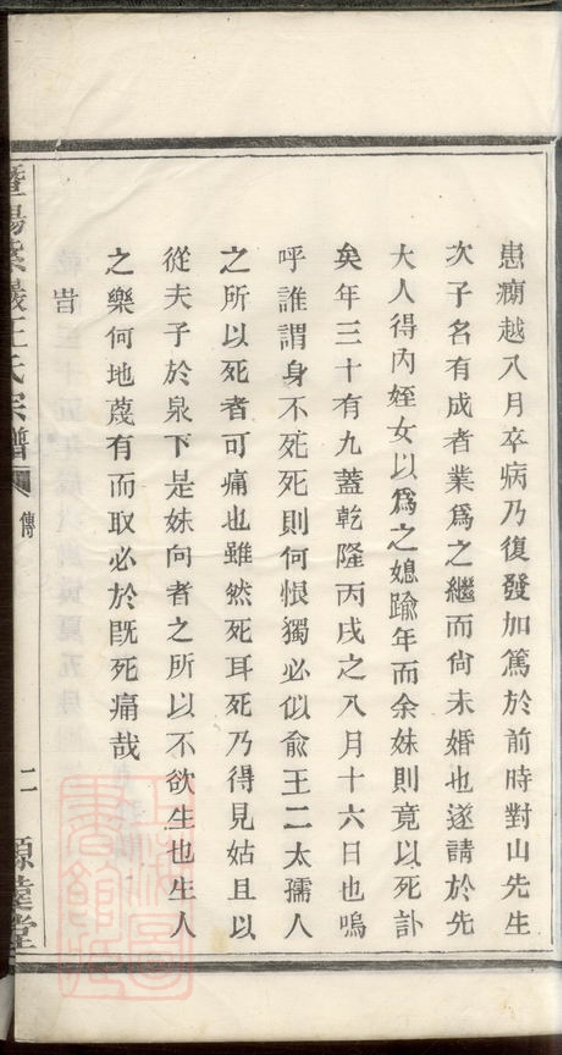 患癇越八月卒病乃復發加篤於前時對山先生
次子名有成者業爲之繼而尙未婚也遂請於先
大人得內姪女以爲之媳踰年而余妹則竟以死訃
矣年三十有九蓋乾隆丙戌之八月十六日也嗚
呼誰謂身不死死則何恨獨必似俞王二太孺人
之所以死者可痛也雖然死耳死乃得見姑且以
從夫子於泉下是妹向者之所以不欲生也生人
之樂何地蔑有而取必於旣死痛哉
旹
暨陽紫巖王氏宗譜
傳
二